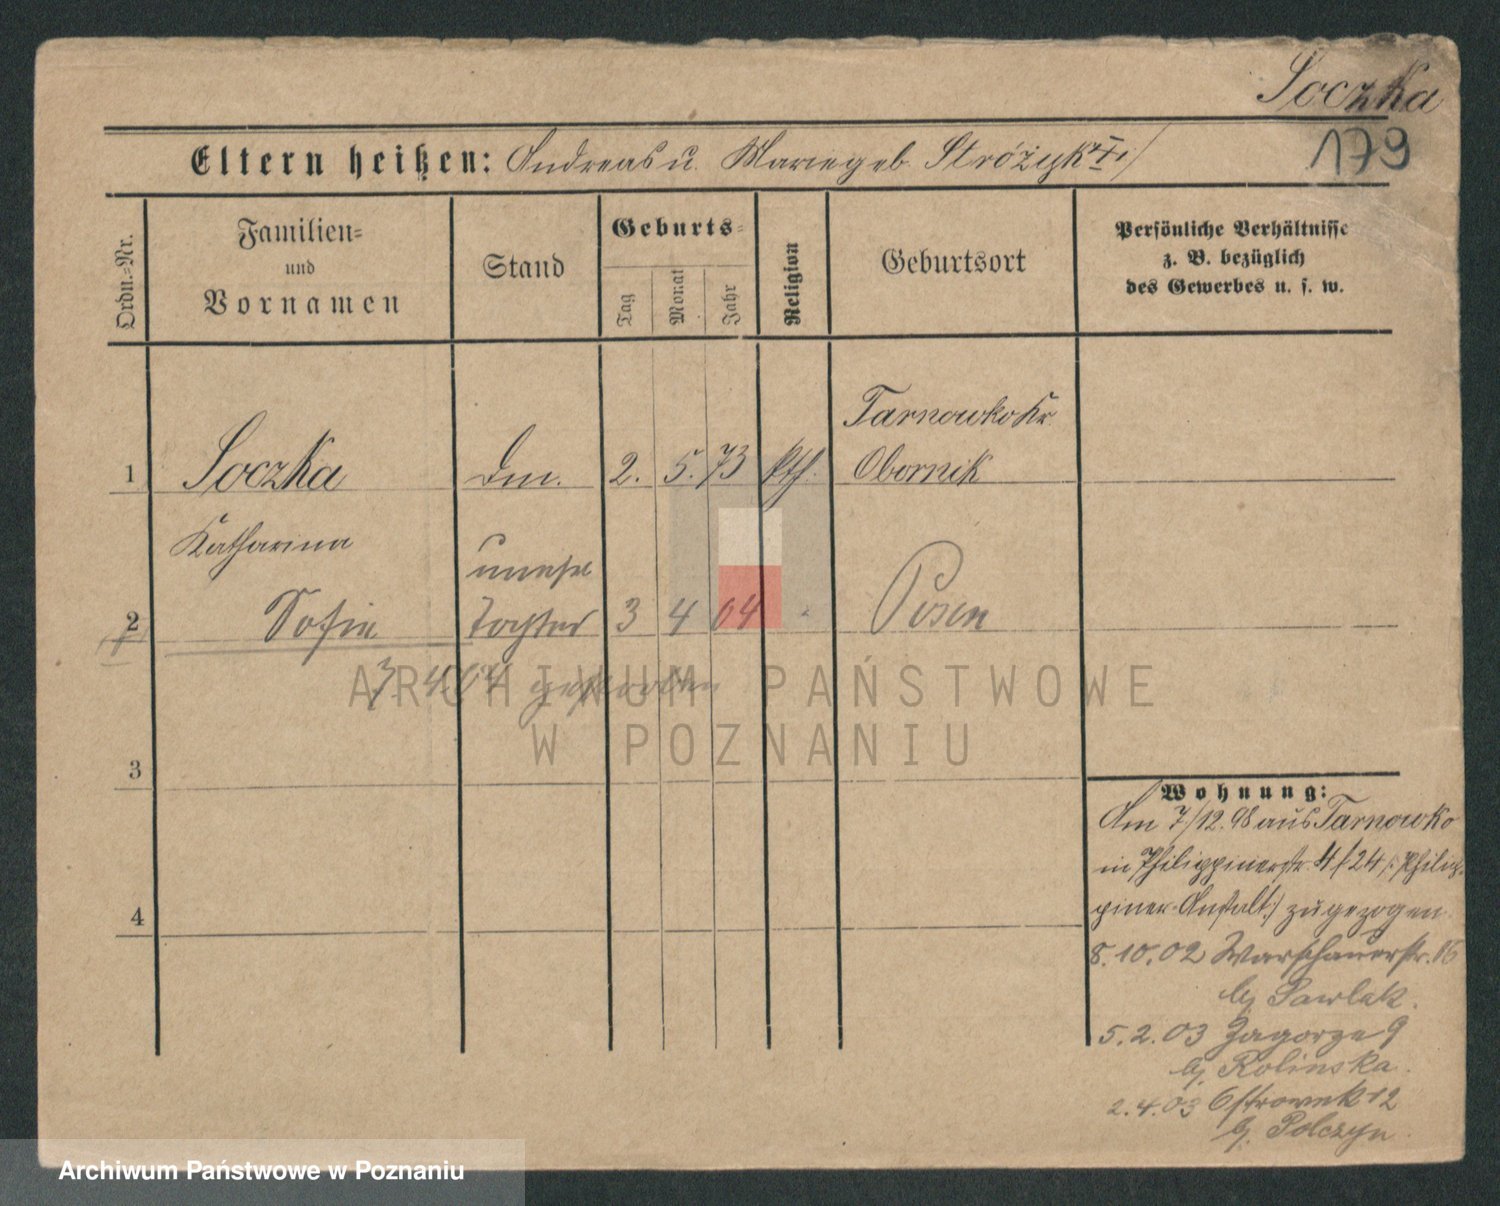 Soczka
179
Eltern heißen: Andreas u. Marie geb Stróżyk
Ordn.=Nr.
Familien=
und
Vornamen
Stand
Geburts=
Tag
Monat
Jahr
Religion
Geburtsort
Persönliche Verhältnisse
z. B. bezüglich
des Gewerbes u. s. w.
Tarnowko Kr.
1 Soczka Dm. 2. 5. 73 kth. Obornik
Katharina
unehel
2 Sofie Tochter 3 4 04 Posen
7 4 04 gestorben
ARCHIWUM PAŃSTWOWE
W POZNANIU
3
4
Wohnung:
Am 7/12. 98 aus Tarnowko
in Philippinerstr. 4/24 /: Philip
piner-Anstalt:/ zugezogen
8. 10. 02 Warschauerstr. 16
bj Pawlak.
5. 2. 03 Zagorze 9
bj. Rolinska.
2. 4. 03 Ostrowek 12
bj. Polczyn
Archiwum Państwowe w Poznaniu